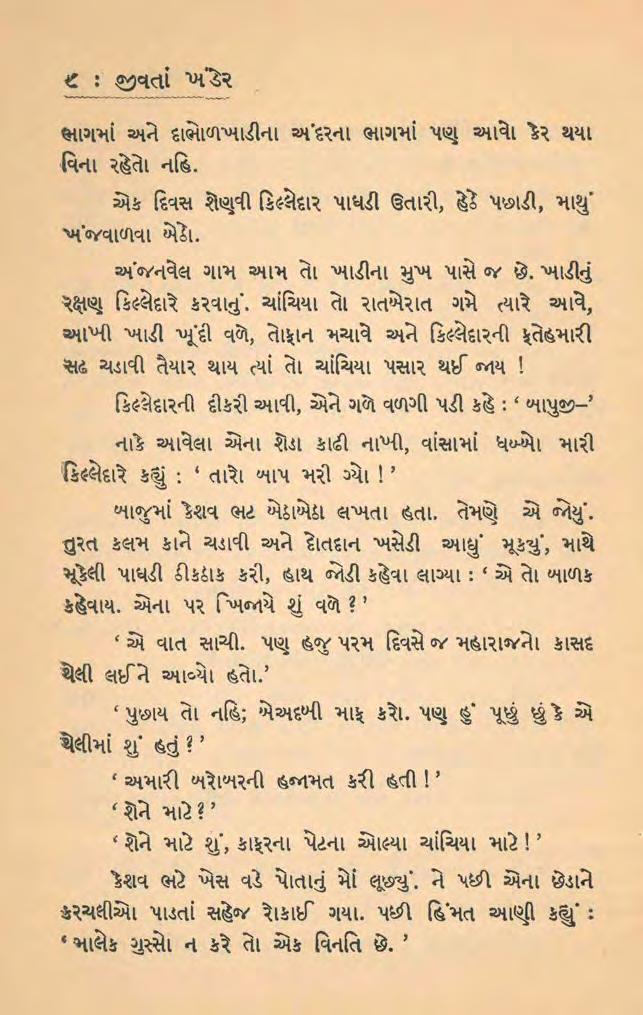 ૯ : જીવતાં ખંડેર
ભાગમાં અને દાભોળખાડીના અંદરના ભાગમાં પણ આવો કેર થયા
વિના રહેતો નહિ.
એક દિવસ શેણવી કિલ્લેદાર પાઘડી ઉતારી, હેઠે પછાડી, માથું
ખંજવાળવા બેઠો.
અંજનવેલ ગામ આમ તો ખાડીના મુખ પાસે જ છે. ખાડીનું
રક્ષણ કિલ્લેદારે કરવાનું. ચાંચિયા તો રાતબેરાત ગમે ત્યારે આવે,
આખી ખાડી ખૂંદી વળે, તોફાન મચાવે અને કિલ્લેદારની ફતેહમારી
સઢ ચડાવી તૈયાર થાય ત્યાં તો ચાંચિયા પસાર થઈ જાય !
કિલ્લેદારની દીકરી આવી, એને ગળે વળગી પડી કહે : ‘ બાપુજી–’
નાકે આવેલા એના શેડા કાઢી નાખી, વાંસામાં ધબ્બો મારી
કિલ્લેદારે કહ્યું : ‘ તારો બાપ મરી ગ્યો ! ’
બાજુમાં કેશવ ભટ બેઠાબેઠા લખતા હતા. તેમણે એ જોયું.
તુરત કલમ કાને ચડાવી અને દોતદાન ખસેડી આઘું મૂક્યું, માથે
મૂકેલી પાઘડી ઠીકઠાક કરી, હાથ જોડી કહેવા લાગ્યા : ‘ એ તો બાળક
કહેવાય. એના પર ખિજાયે શું વળે ? ’
‘ એ વાત સાચી. પણ હજુ પરમ દિવસે જ મહારાજનો કાસદ
થેલી લઈને આવ્યો હતો.’
‘ પુછાય તો નહિ; બેઅદબી માફ કરો. પણ હું પૂછું છું કે એ
થેલીમાં શું હતું ? ’
‘ અમારી બરોબરની હજામત કરી હતી ! ’
‘ શેને માટે ? ’
‘ શેને માટે શું, કાફરના પેટના ઓલ્યા ચાંચિયા માટે ! ’
કેશવ ભટે ખેસ વડે પોતાનું મોં લૂછ્યું. ને પછી એના છેડાને
કરચલીઓ પાડતાં સહેજ રોકાઈ ગયા. પછી હિંમત આણી કહ્યું :
‘ માલેક ગુસ્સો ન કરે તો એક વિનતિ છે. ’